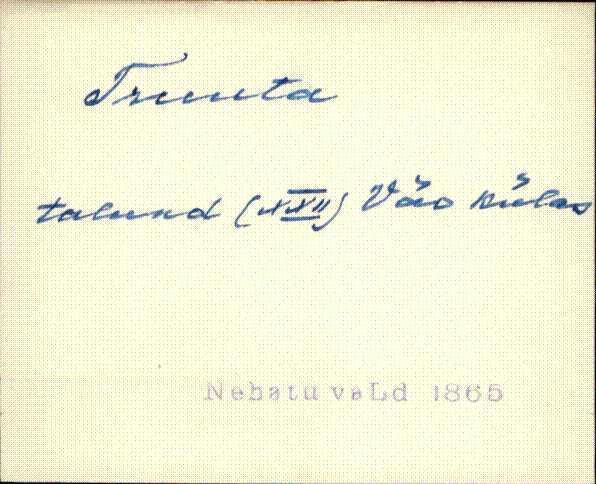 Truuta
talund (XXII) Väo külas
Nehatu vald 1865